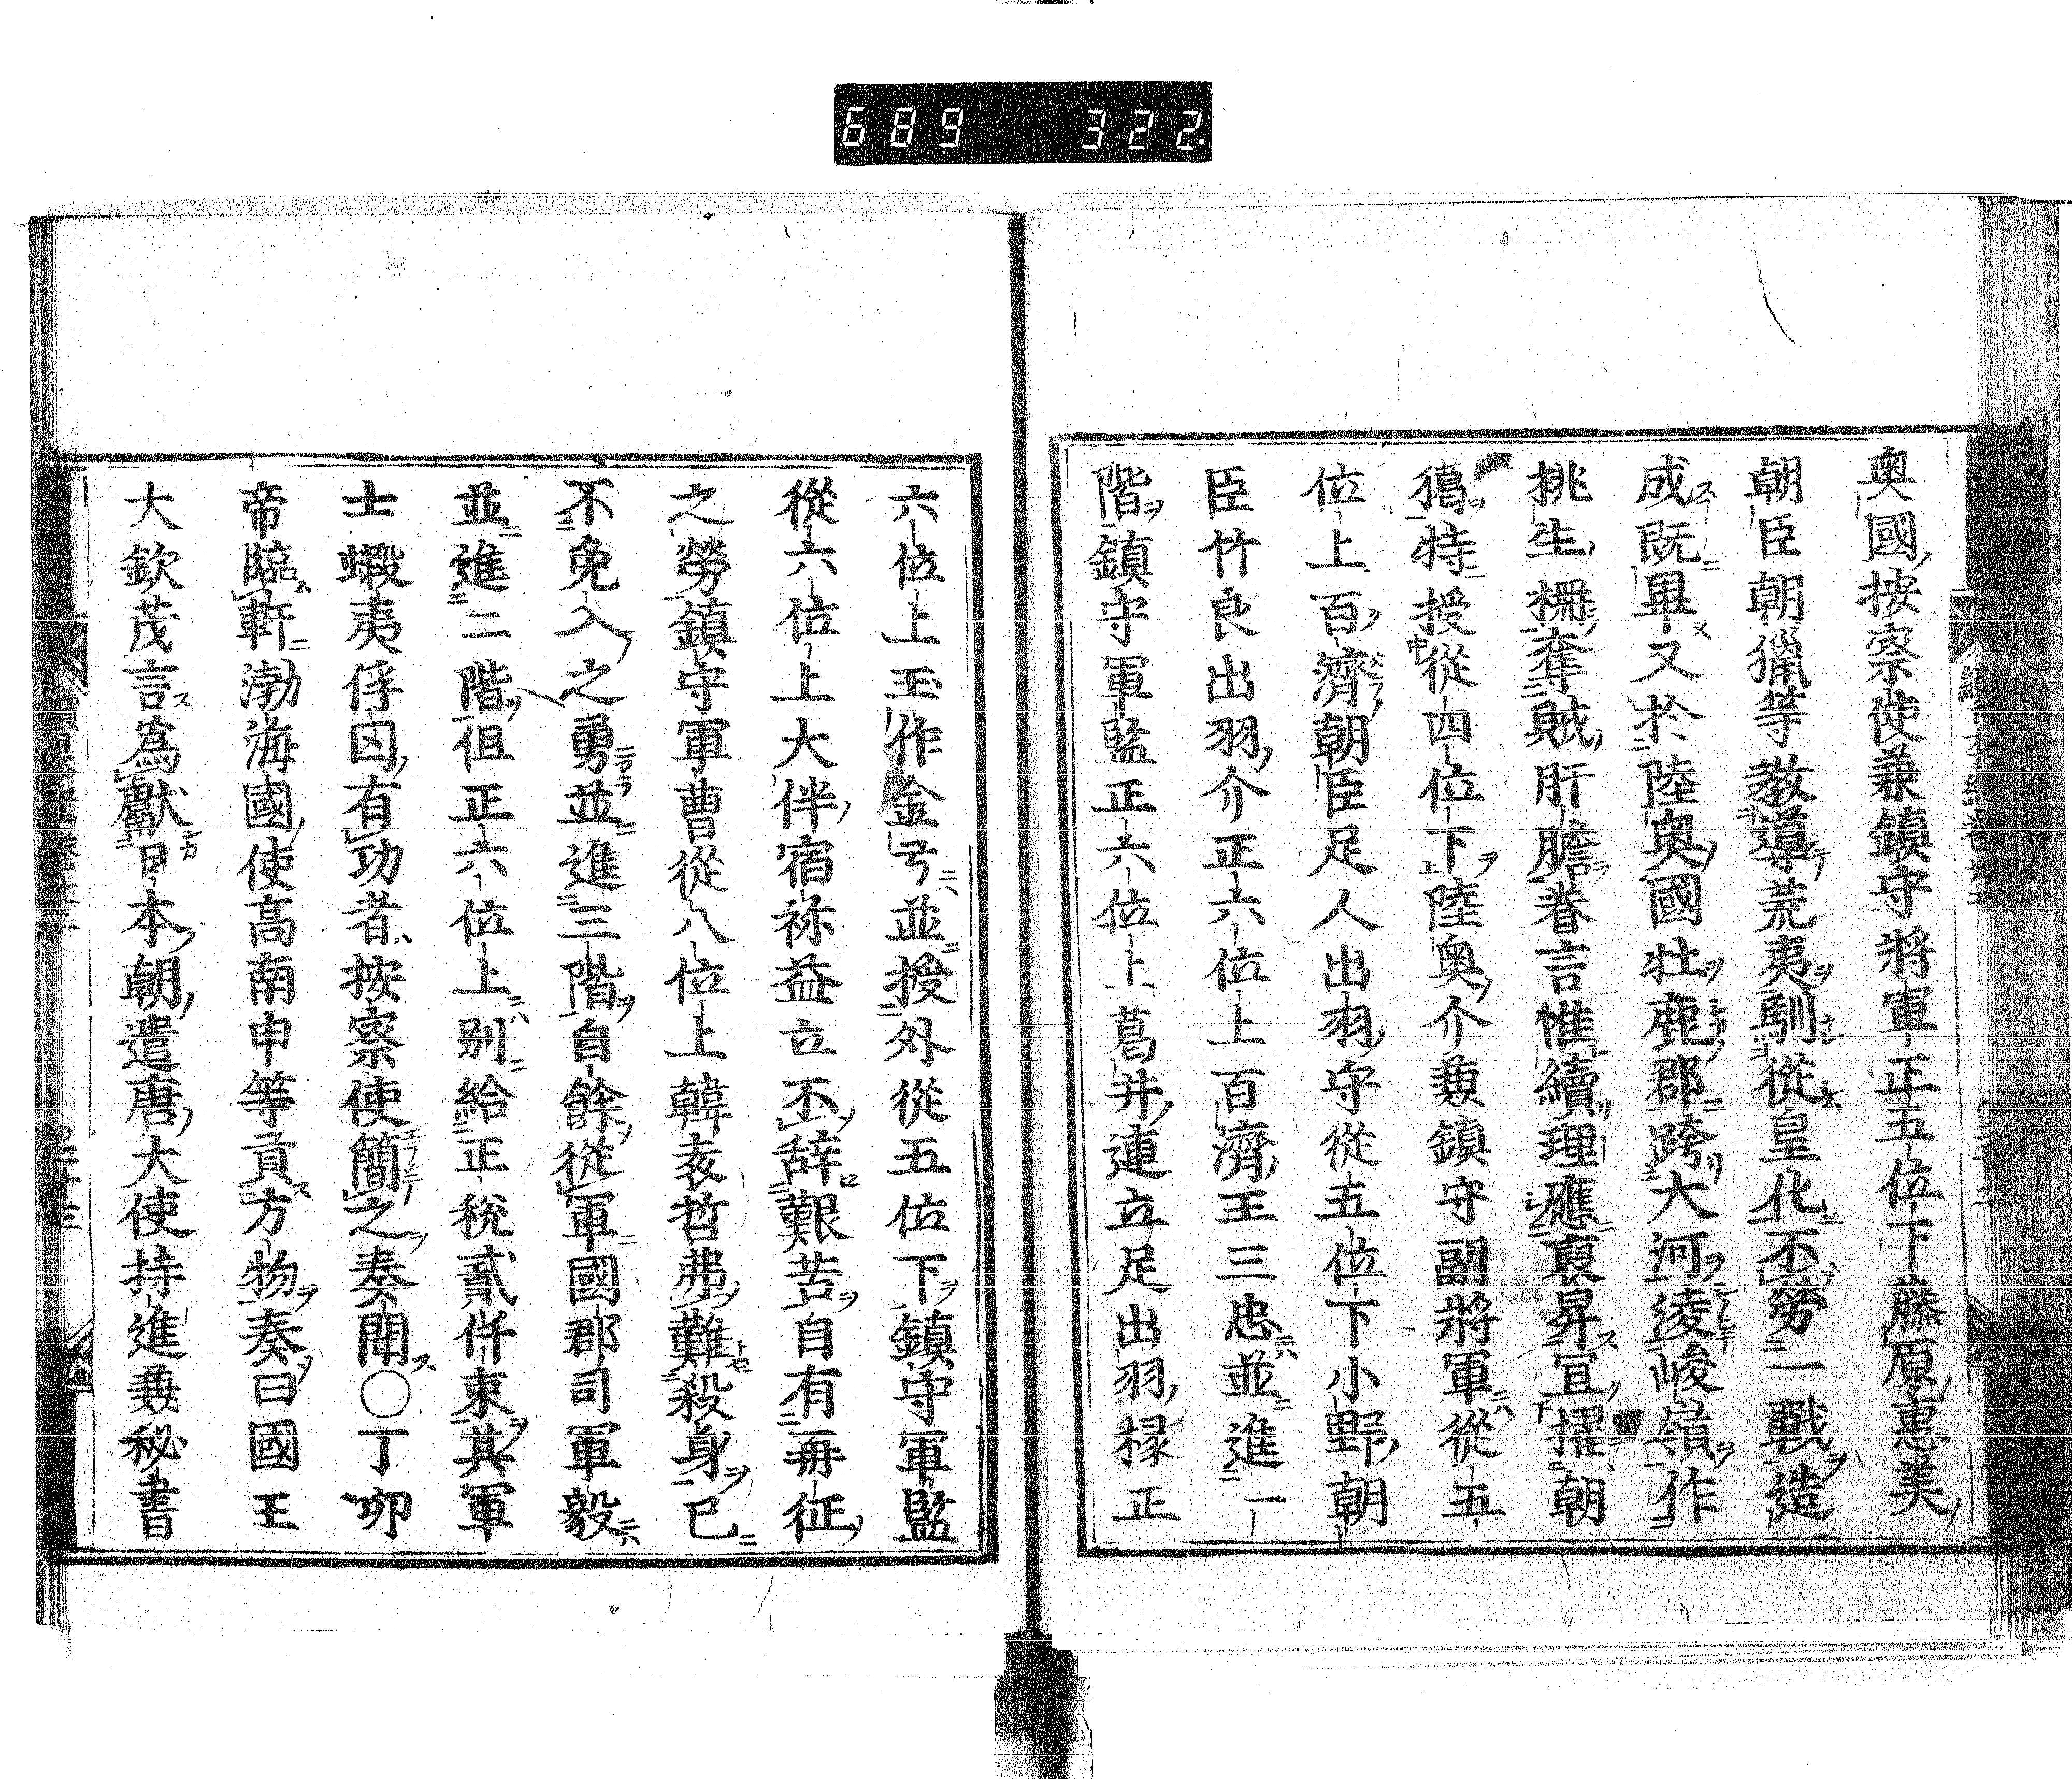 689 322
奥國按察使兼鎮守將軍正五位下藤原惠美
朝臣朝獵等教導荒夷馴從皇化不勞一戰造
成既畢又於陸奥國牡鹿郡跨大河淩峻嶺作
桃生柵奪賊肝膽眷言惟續理應褒昇宜擢朝
獦特授從四位下陸奥介兼鎮守副將軍從五
位上百濟朝臣足人出羽守從五位下小野朝
臣竹良出羽介正六位上百濟王三忠並進一
階鎮守軍監正六位上葛井連立足出羽掾正
六位上玉作金弓並授外從五位下鎮守軍監
從六位上大伴宿祢益立不辞艱苦自有再征
之勞鎮守軍曹從八位上韓袁哲弗難殺身已
不免入之勇並進三階自餘從軍國郡司軍毅
並進二階但正六位上别給正税貳仟束其軍
士蝦夷俘囚有功者按察使簡之奏聞〇丁卯
帝臨軒渤海國使高南申等貢方物奏曰國王
大欽茂言為獻日本朝遣唐大使特進兼秘書